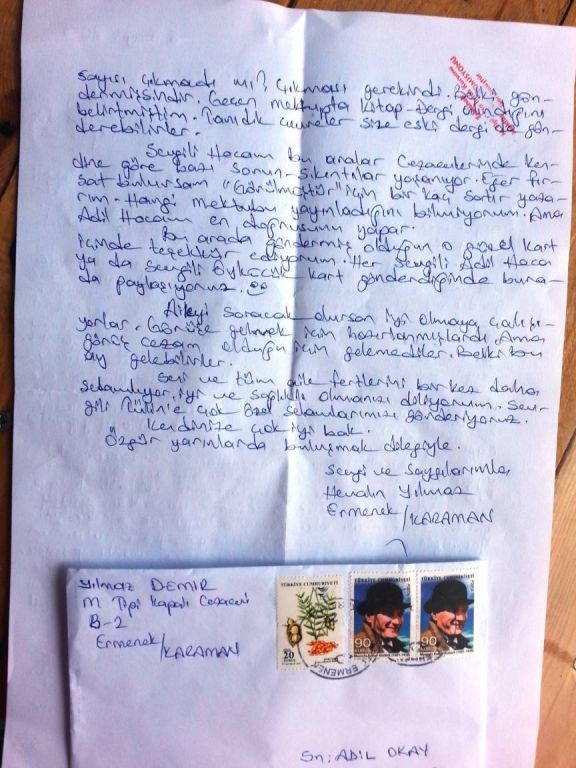 sayısı çıkmadı mı? Çıkması gerekirdi. Belki gön-
dermişsindir. Geçen mektupta kitap-Dergi alındığını
belirtmiştim. Tanıdık çevreler size eski dergi de gön-
derebilirler.
Sevgili Hocam bu aralar Cezaevlerinde ken-
dine göre bazı sorun-sıkıntılar yaşanıyor. Eğer fır-
sat bulursam "Görülmüştür" için bir kaç satır yaza-
rım. Hangi mektubu yayınladığını bilmiyorum. Ama
Adil Hocam en doğrusunu yapar.
Bu arada göndermiş olduğun o güzel kart
içinde teşekkür ediyorum. Her sevgili Adil Hoca
ya da sevgili Öykücük kart gönderdiğinde bura-
da paylaşıyoruz.
Aileyi soracak olursan iyi olmaya çalışı-
yorlar. Görüşe gelmek için hazırlanmışlardı. Ama
görüş cezam olduğu için gelemediler. Belki bu
ay gelebilirler.
Seni ve tüm aile fertlerini bir kez daha
selamlıyor, iyi ve sağlıklı olmanızı diliyorum. Sev-
gili Tülin'e çok özel selamlarımızı gönderiyoruz.
Kendinize çok iyi bak.
Özgür yarınlarda buluşmak dileğiyle.
Sevgi ve Saygılarımla
Hevalin Yılmaz
Ermenek/KARAMAN
Yılmaz DEMİR
M Tipi Kapalı Cezaevi
B-2
Ermenek/KARAMAN
TÜRKİYE CUMHURİYETİ
20
TÜRKİYE CUMHURİYETİ
90
TÜRKİYE CUMHURİYETİ
90
ERMENEK
Sn: ADİL OKAY